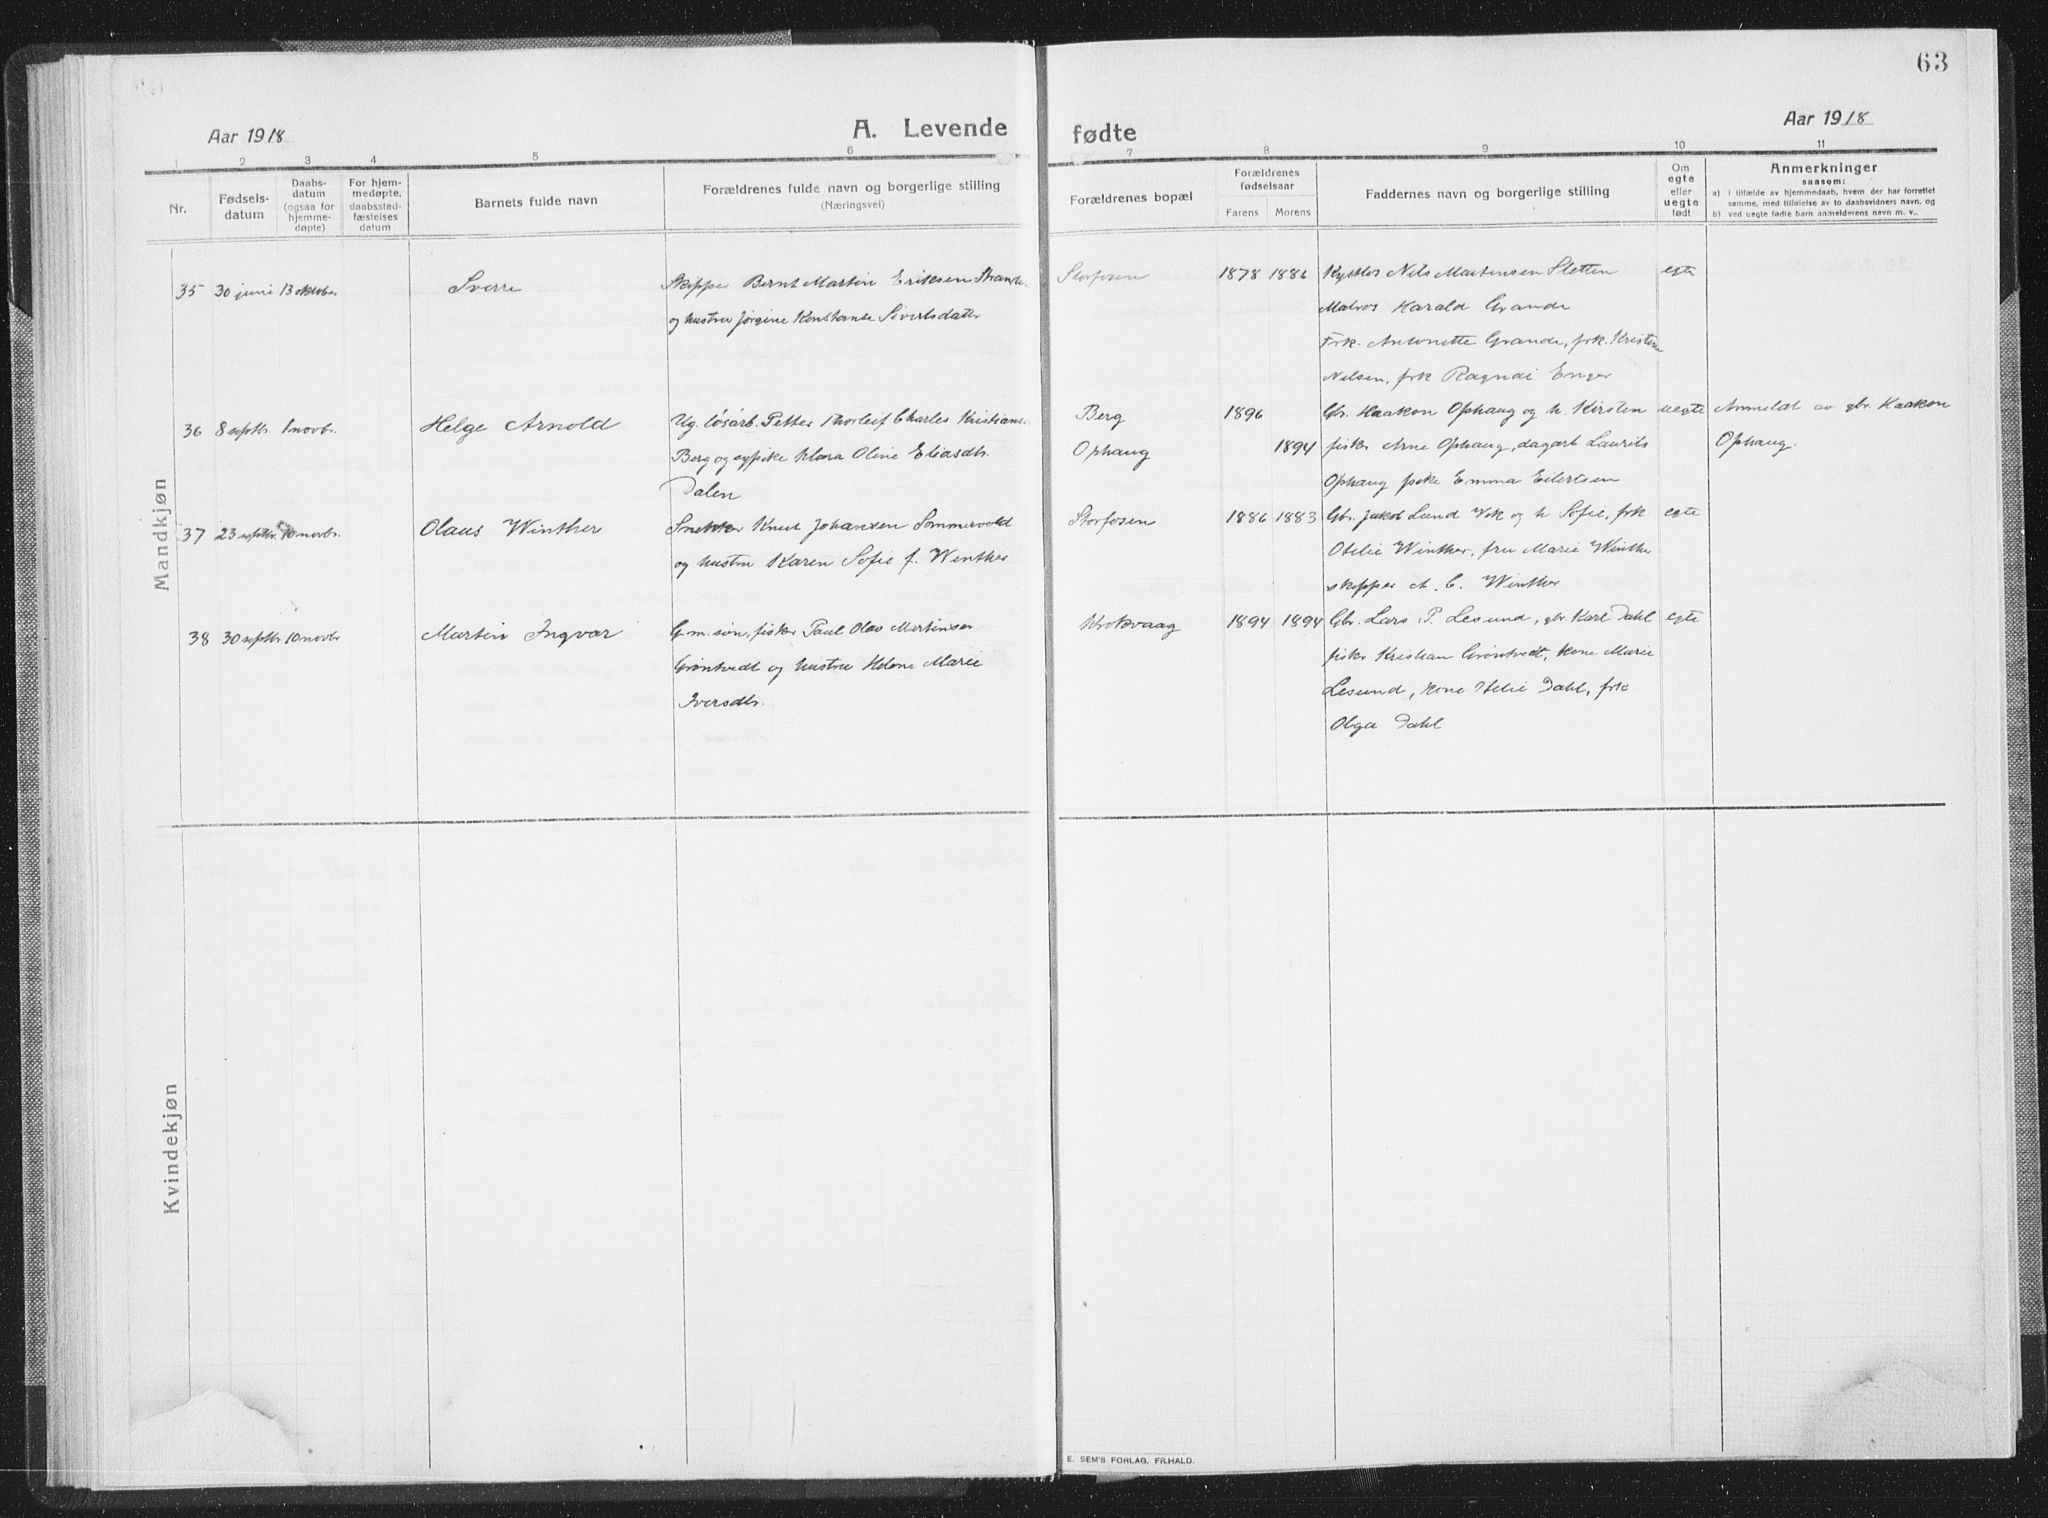 63
Aar 1918
A. Levende
fødte
Aar 1918
1 2 3 4 5 6 7 8 9 10 11
Nr.
Fødsels-
datum
Daabs-
datum
(ogsaa for
hjemme-
døpte)
For hjem-
medøpte,
daabsstad-
fæstelses
datum
Barnets fulde navn
Forældrenes fulde navn og borgerlige stilling
(Næringsvei)
Forældrenes bopæl
Forældrenes
fødselsaar
Farens Morens
Faddernes navn og borgerlige stilling
Om
egte
eller
uegte
født
Anmerkninger
saasom:
a) I tilfælde av hjemmedaab, hvem der har forrettet
samme, med tilføielse av to daabsvidners navn, og
b) ved uegte fødte barn anmelderens navn m. v..
Mandkjøn
35 30 juni 13 oktober Sverre
Skipper Bernt Martin Eriksen
og hustru Jørgine Konstanse Sivertsdatter
Storfosen 1878 1886
Nils Martinsen Sletten
Matros Harald Grande
Frk. Antonette Grande, frk. Kristine
Nilsen, frk Ragndi Enger
egte
36 8 septbr. 1 novbr. Helge Arnold
Ug. løsarb. Petter Thorleif Charles Kristians.
Berg og Klara Oline Eliasdtr.
Dalen
Berg 1896
Ophaug 1894
Gbr. Haakon Ophaug og h. Kirsten
fisker Arne Ophaug, dagarb Laurits
Ophaug pike Emma Eilertsen
uegte
Anmeldt av gbr. Haakon
Ophaug.
37 23 septbr. 10 novbr. Olaus Winther
Snekker Knut Johansen Sommervold
og hustru Karen Sofie f. Winther
Storfosen 1886 1883
Gbr. Jakob Lund Vik og h Sofie, frk
Otelie Winther, fru Marie Winther
skipper A. C. Winther
egte
38 30 septbr 10 novbr Martin Ingvar
G.m.søn, fisker Paul Olav Martinsen
Grøntvedt og hustru Helene Marie
Iversdtr.
Krokvaag 1894 1894
Gbr. Lars P. Lesund, gbr. Karl Dahl
fisker Kristian Grøntvedt, kone Marie
Lesund, kone Otelie Dahl, frk
Olga Dahl
egte
Kvindekjøn
E. SEM'S FORLAG, FR.HALD.